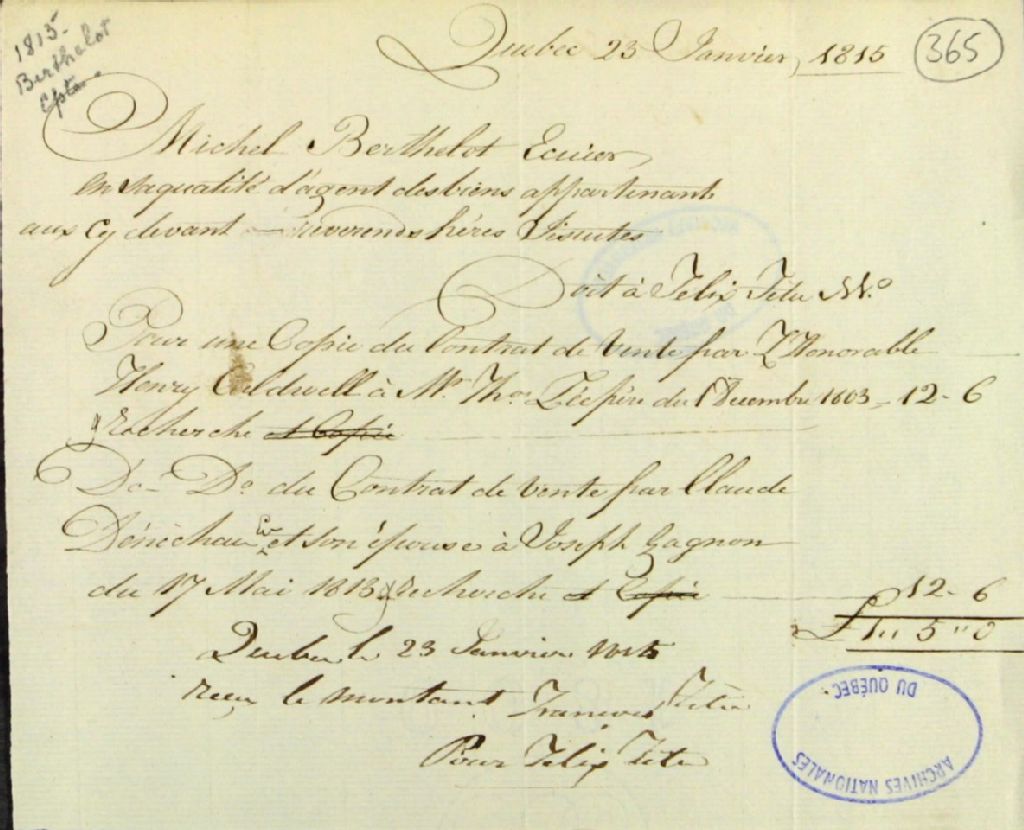 1815-
Berthelot
Cpte
Quebec 23 Janvier, 1815
365
Michel Berthelot Ecuier
en saqualité d'agent desbiens appartenant
aux Cy devant Révérends Péres Jisuites
Doit à Felix Tetu N.P.
Pour une Copie du Contrat de Vente par L'Honorable
Henry Caldwell à Mr. Thos. Lécpére du 1 Decembre 1803 - 12 - 6
& Recherche et Copie
Do- Do du Contrat de vente par Claude
Dénéchau Ecr et son épouse à Joseph Gagnon
du 17 Mai 1813 & recherche et Copie 12 - 6
£ 1 " 5 " 0
Quebec le 23 Janvier 1815
recu le montant François Tétu
Pour Felix Tetu
ARCHIVES NATIONALES
DU QUÉBEC